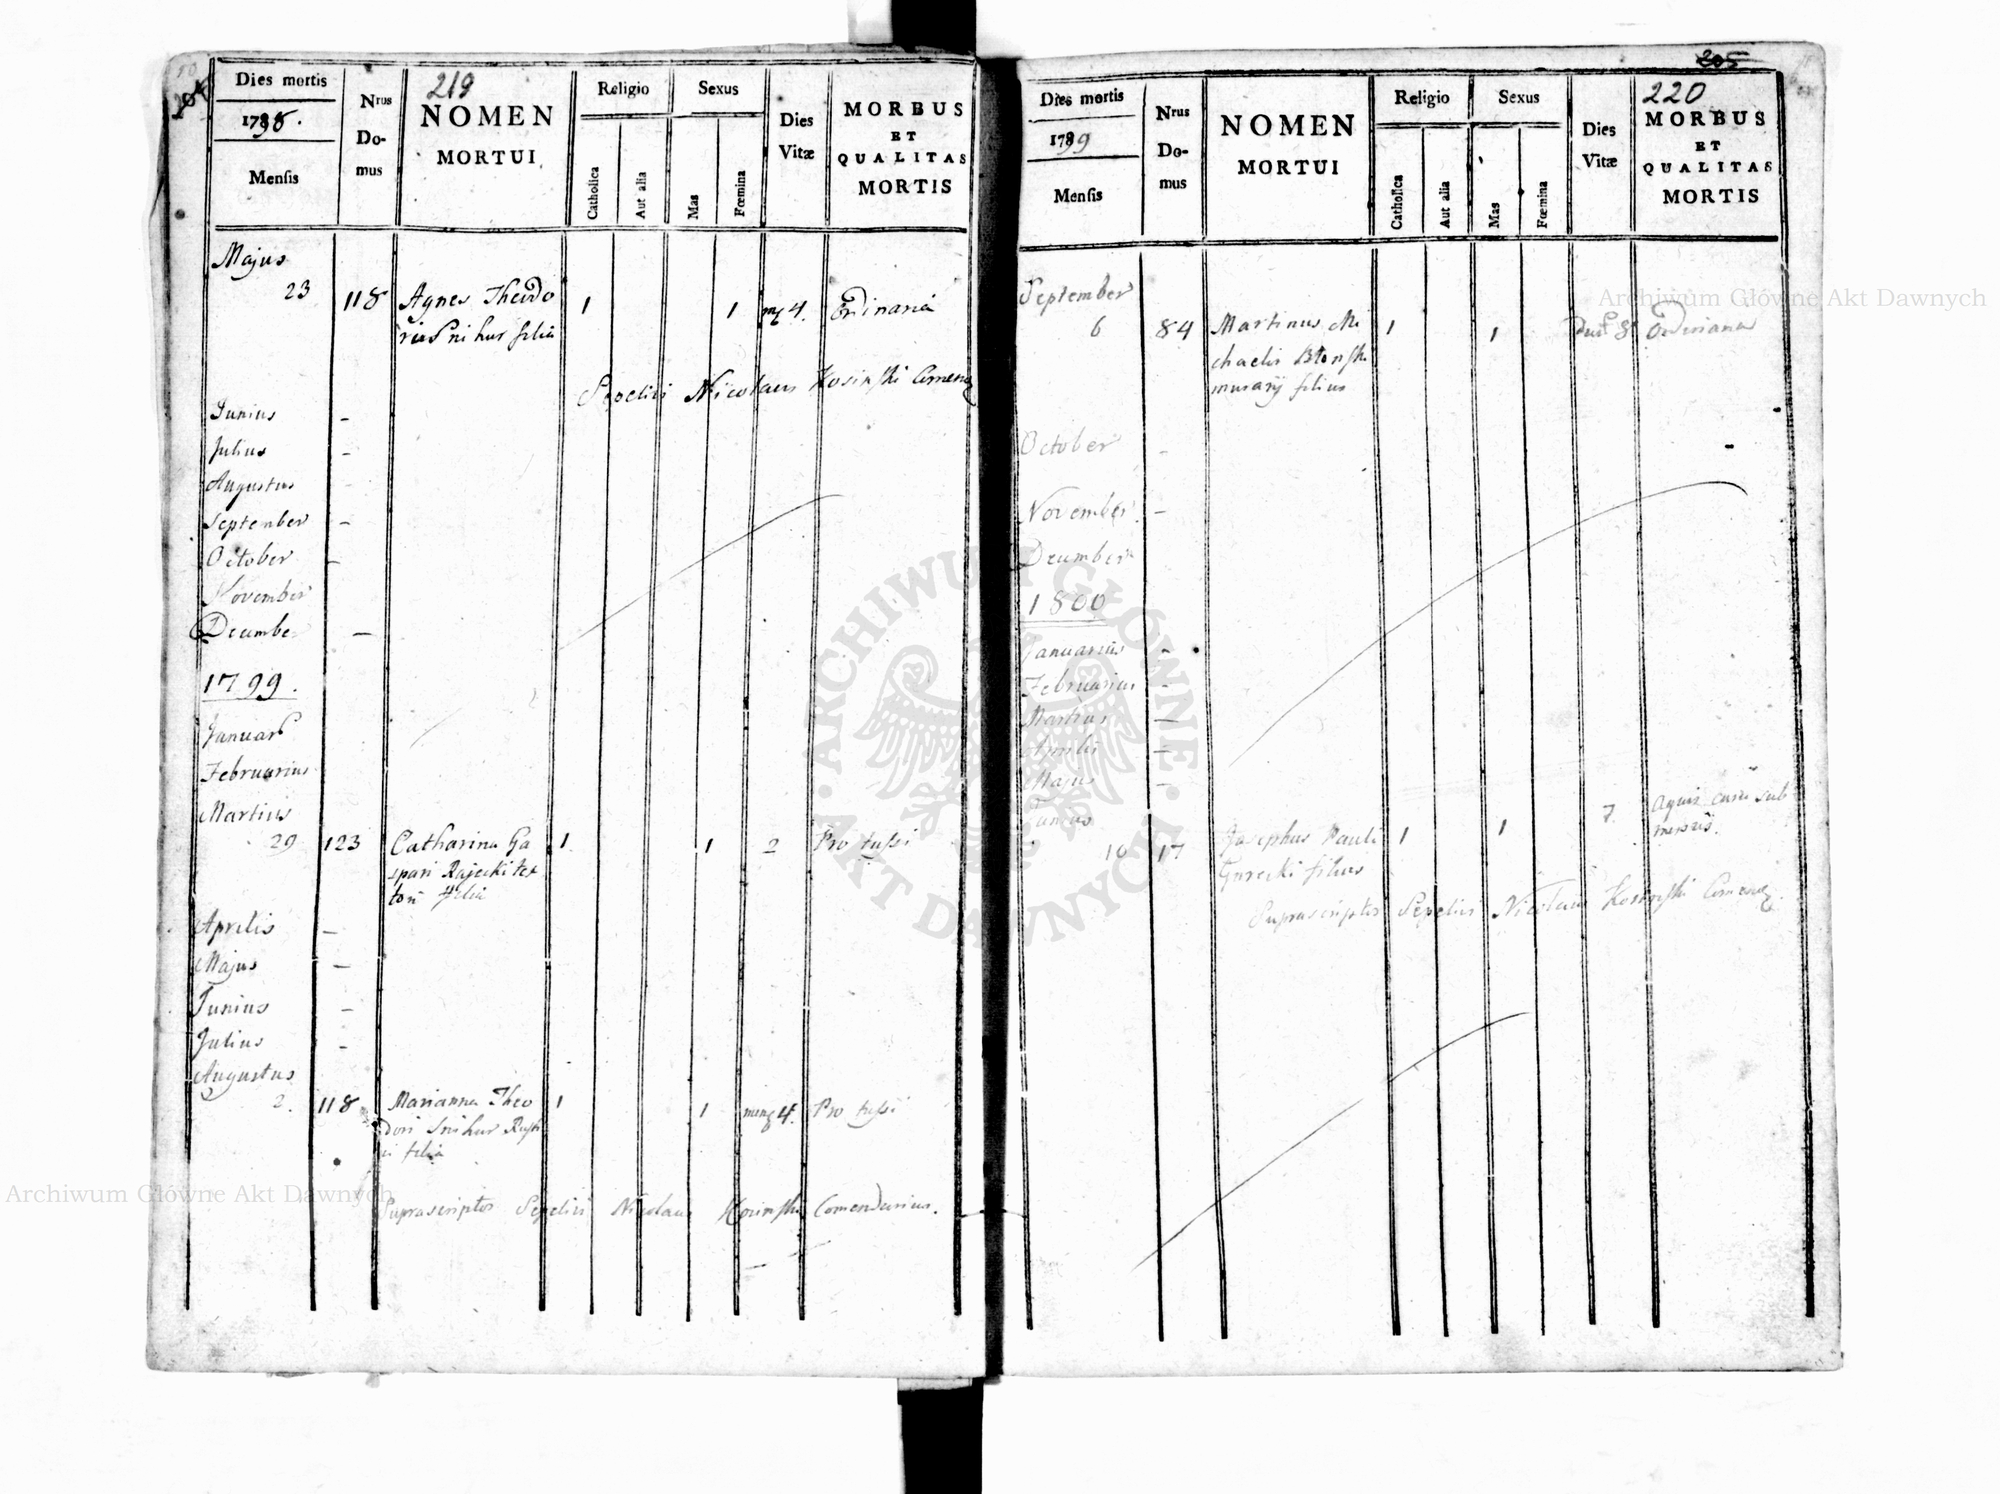 219
Dies mortis
1798.
Mensis
Nrus
Do-
mus
NOMEN
MORTUI
Religio
Catholica
Aut alia
Sexus
Mas
Fœmina
Dies
Vitæ
MORBUS
ET
QUALITAS
MORTIS
Majus
23 118 Agnes Theodo 1 1 4. Ordinaria
ri Snihur filia
Sepelivi Nicolaus Kosinski Comend
Junius -
Julius -
Augustus -
September -
October -
November
December -
1799.
Januar
Februarius
Martius
29 123 Catharina Ga 1 1 2 Pro tussi
spari Rajecki tex
tori filia
Aprilis -
Majus -
Junius -
Julius -
Augustus
2. 118 Marianna Theo 1 1 4. Pro tussi
dori Snihur Rusti
ci filia
Suprascriptos Sepelivi Nicolaus Kosinski Comendarius.
205
220
Dies mortis
1799
Mensis
Nrus
Do-
mus
NOMEN
MORTUI
Religio
Catholica
Aut alia
Sexus
Mas
Fœmina
Dies
Vitæ
MORBUS
ET
QUALITAS
MORTIS
September
6 84 Martinus Mi 1 1 8 Ordinaria
chaelis
murarij filius
October -
November -
December
1800
Januarius -
Februarius -
Martius -
Aprilis -
Majus -
Junius
10 17 Josephus Pauli 1 1 7. aquis casu sub
Gurecki filius mersus.
Suprascriptos Sepelivi Nicolaus Kosinski Comend
Archiwum Główne Akt Dawnych
Archiwum Główne Akt Dawnych
ARCHIWUM GŁÓWNE AKT DAWNYCH